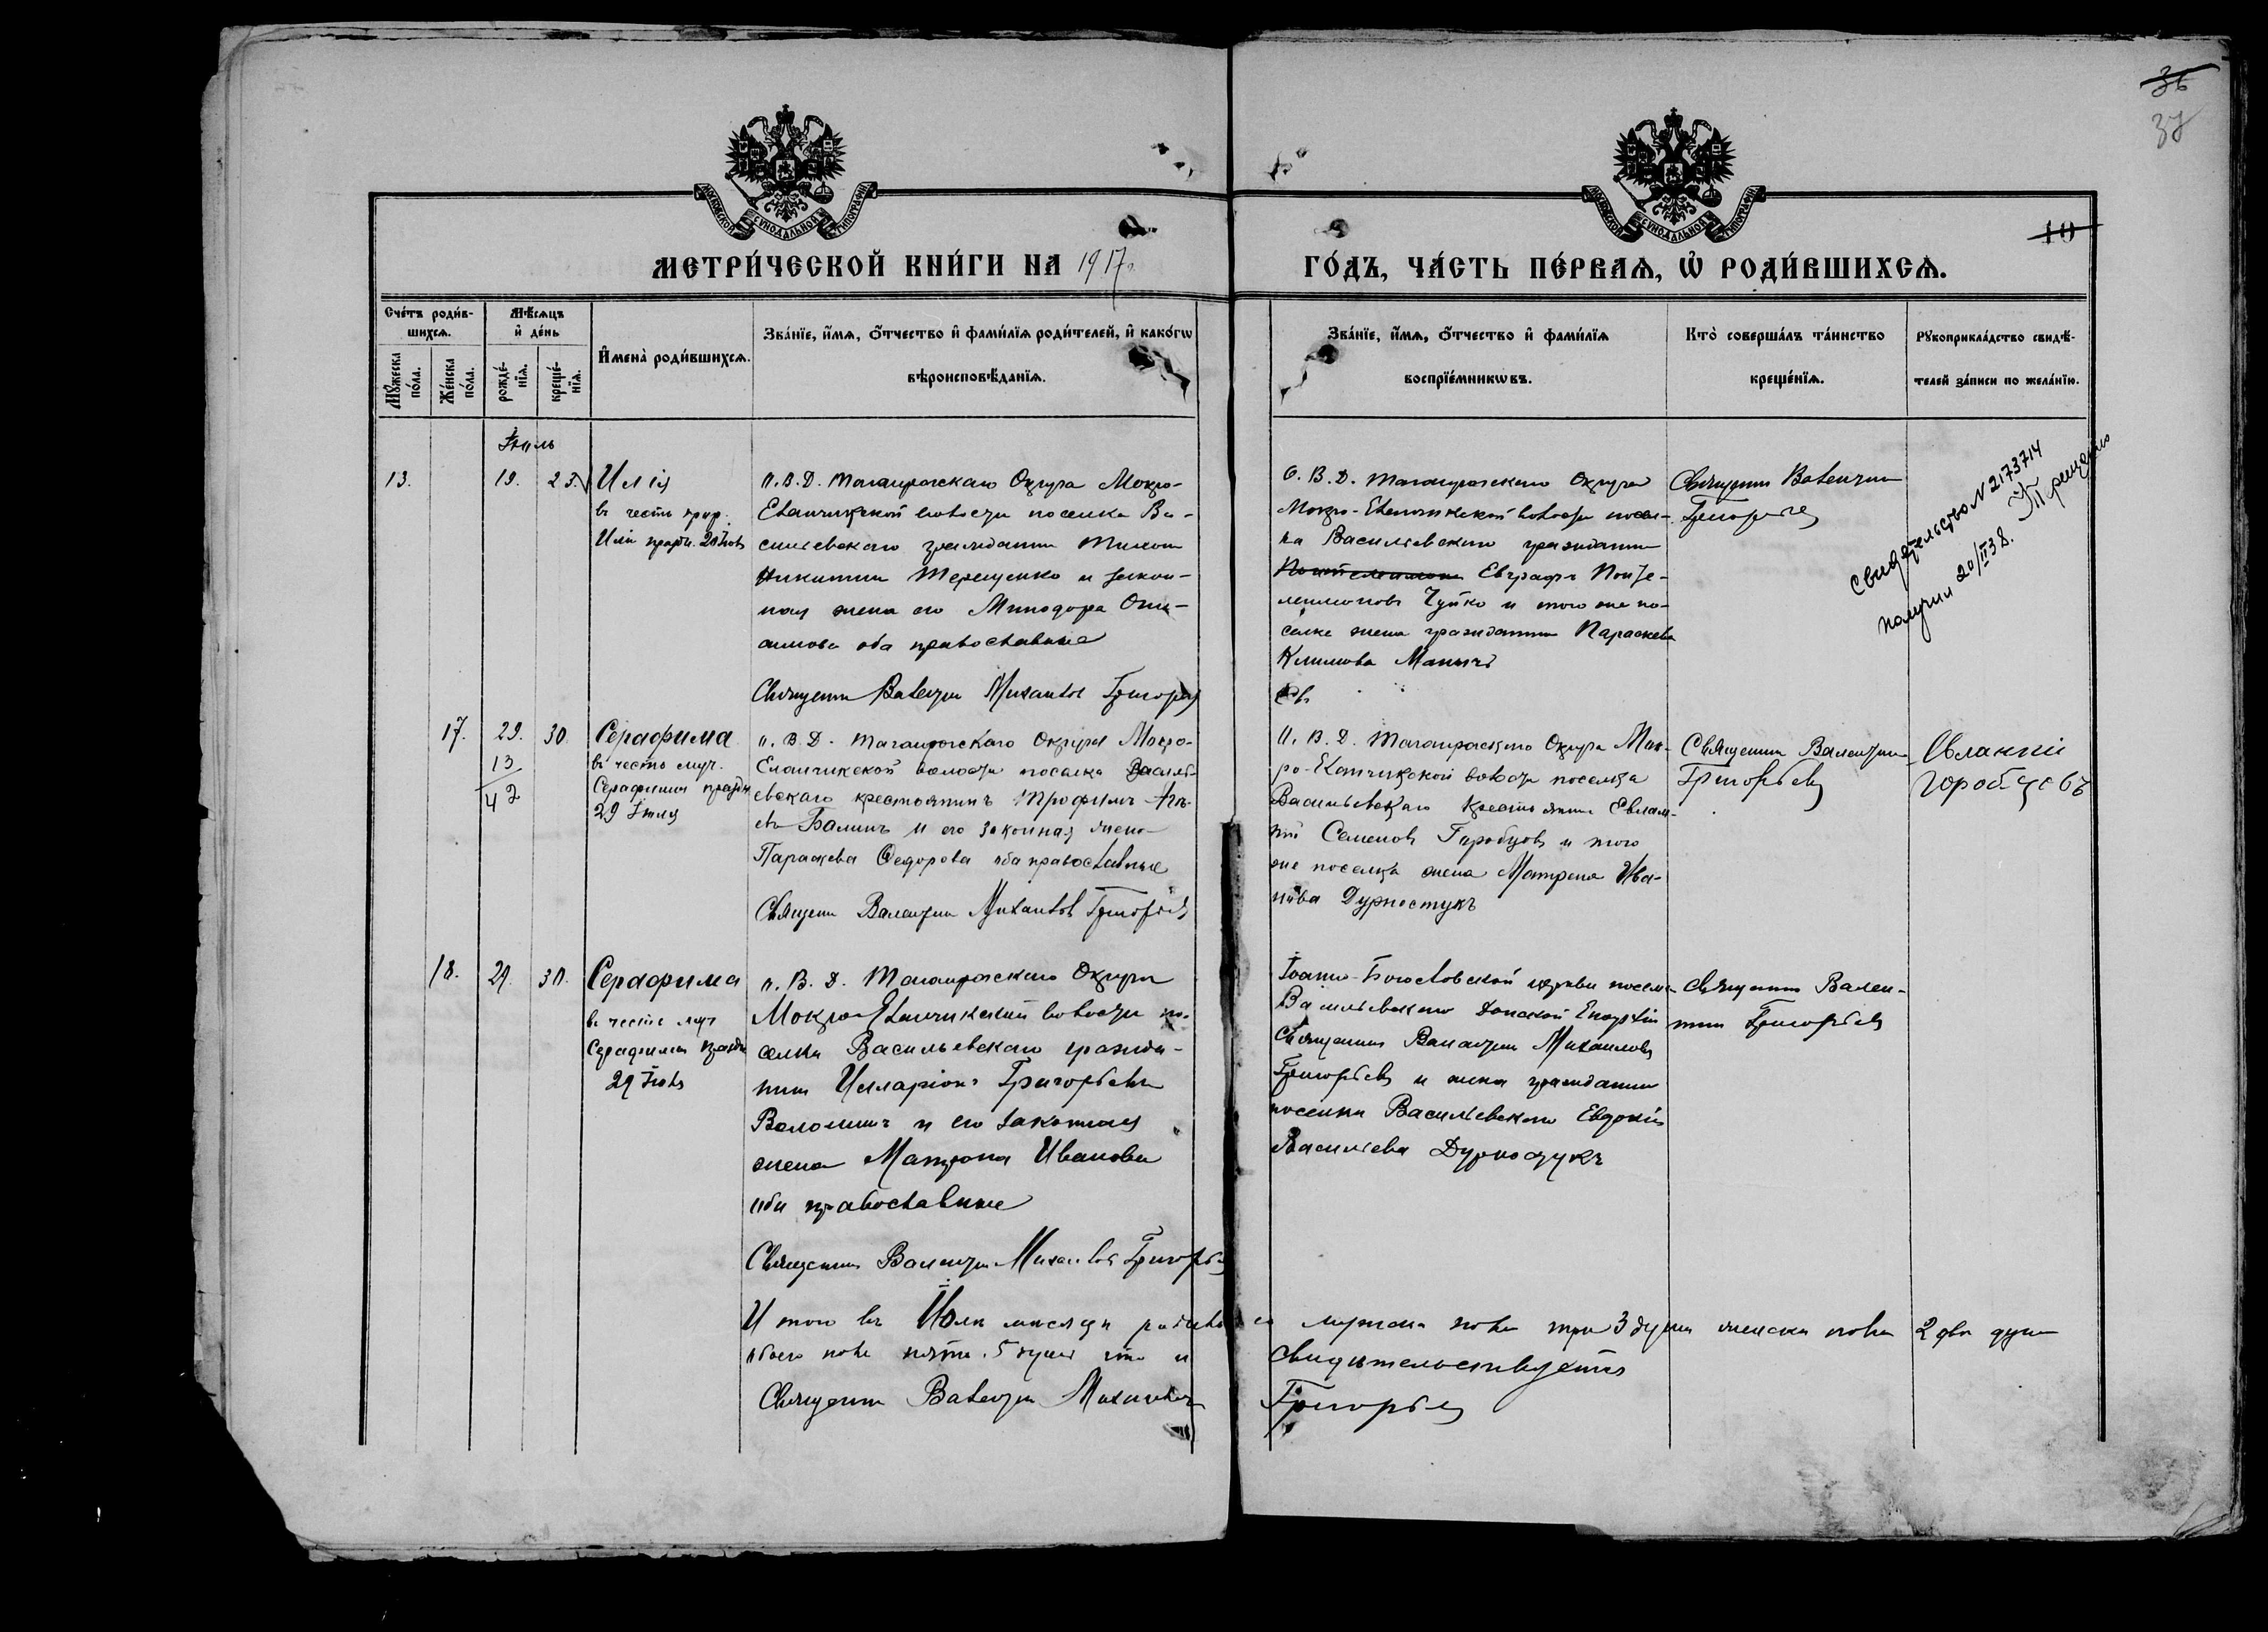 36
37
МОСКОВСКОЙ СѴНОДАЛЬНОЙ ТИПОГРАФІИ
МОСКОВСКОЙ СѴНОДАЛЬНОЙ ТИПОГРАФІИ
10
МЕТРИ́ЧЕСКОЙ КНИ́ГИ НА 1917 г.
ГО́ДЪ, ЧА́СТЬ ПЕ́РВАѦ, Ѽ РОДИ́ВШИХСѦ.
Сче́тъ роди́в-
шихсѧ.
Мꙋ́жеска
по́ла.
Же́нска
по́ла.
Мѣ́сѧцъ
и҆ де́нь
рожде́-
нїѧ.
креще́-
нїѧ.
И҆мена̀ роди́вшихсѧ.
Зва́нїе, и҆́мѧ, ѻ҆́тчество и҆ фами́лїѧ роди́телей, и҆ како́гѡ
вѣроисповѣ́данїѧ.
Зва́нїе, и҆́мѧ, ѻ҆́тчество и҆ фами́лїѧ
воспрїе́мникѡвъ.
Кто̀ соверша́лъ та́инство
креще́нїѧ.
Рꙋкоприкла́дство свидѣ́-
телей за́писи по жела́нїю.
Іюль
13. 19. 23.
Илія
въ честь прор.
Иліи
О. В. Д. Таганрогскаго Округа Мокро-
Еланчикской волости поселка Ва-
сильевскаго гражданин Тихон
Никитин Терещенко и закон-
ная жена его Минодора
оба православные
Священн Валентин Михаилов Григорьев
О. В. Д. Таганрогскаго Округа
Мокро-Еланчикской волости посел-
ка Васильевскаго гражданин
Евграфъ Панте-
леимоновъ Чуйко и того же по-
селка жена гражданина Параскева
Климова
Св
Священн Валентин
Григорьев
свидетельство N 2173714
получил 20/II 38.
17. 29. 30.
13
42
Серафима
въ честь муч.
Серафимы праздн
29 Іюля
О. В. Д. Таганрогскаго Округа Мокро-
Еланчикской волости поселка Василь-
евскаго крестьянинъ Трофимъ
Балинъ и его законная жена
Параскева Федорова оба православные
Священн Валентин Михаилов Григорьев
О. В. Д. Таганрогскаго Округа Мок-
ро-Еланчикской волости поселка
Васильевскаго крестьянин Евлам-
пій Семеновъ Горобцовъ и того
же поселка жена Матрена Ива-
нова Дурностукъ
Священник Валентин
Григорьев
Евлампій
Горобцовъ
18. 29. 30.
Серафима
въ честь муч
Серафимы праздн
29 Іюля
О. В. Д. Таганрогскаго Округа
Мокро-Еланчикской волости по-
селка Васильевскаго гражда-
нин Илларіонъ Григорьевъ
Волошинъ и его законная
жена Матрона Иванова
оба православные
Священник Валентин Михаилов Григорьев
Іоанно-Богословской церкви поселка
Васильевскаго Донской Епархіи
Священник Валентин Михаиловъ
Григорьевъ и жена гражданина
поселка Васильевскаго Евдокія
Васильева Дурностукъ
Священник Вален-
тин Григорьев
Итого въ Июлѣ месяце родилось мужска пола три 3 души женска пола 2 двѣ души
обоего пола пять 5 душъ что и свидѣтельствуетъ
Священн Валентин Михаиловъ Григорьев